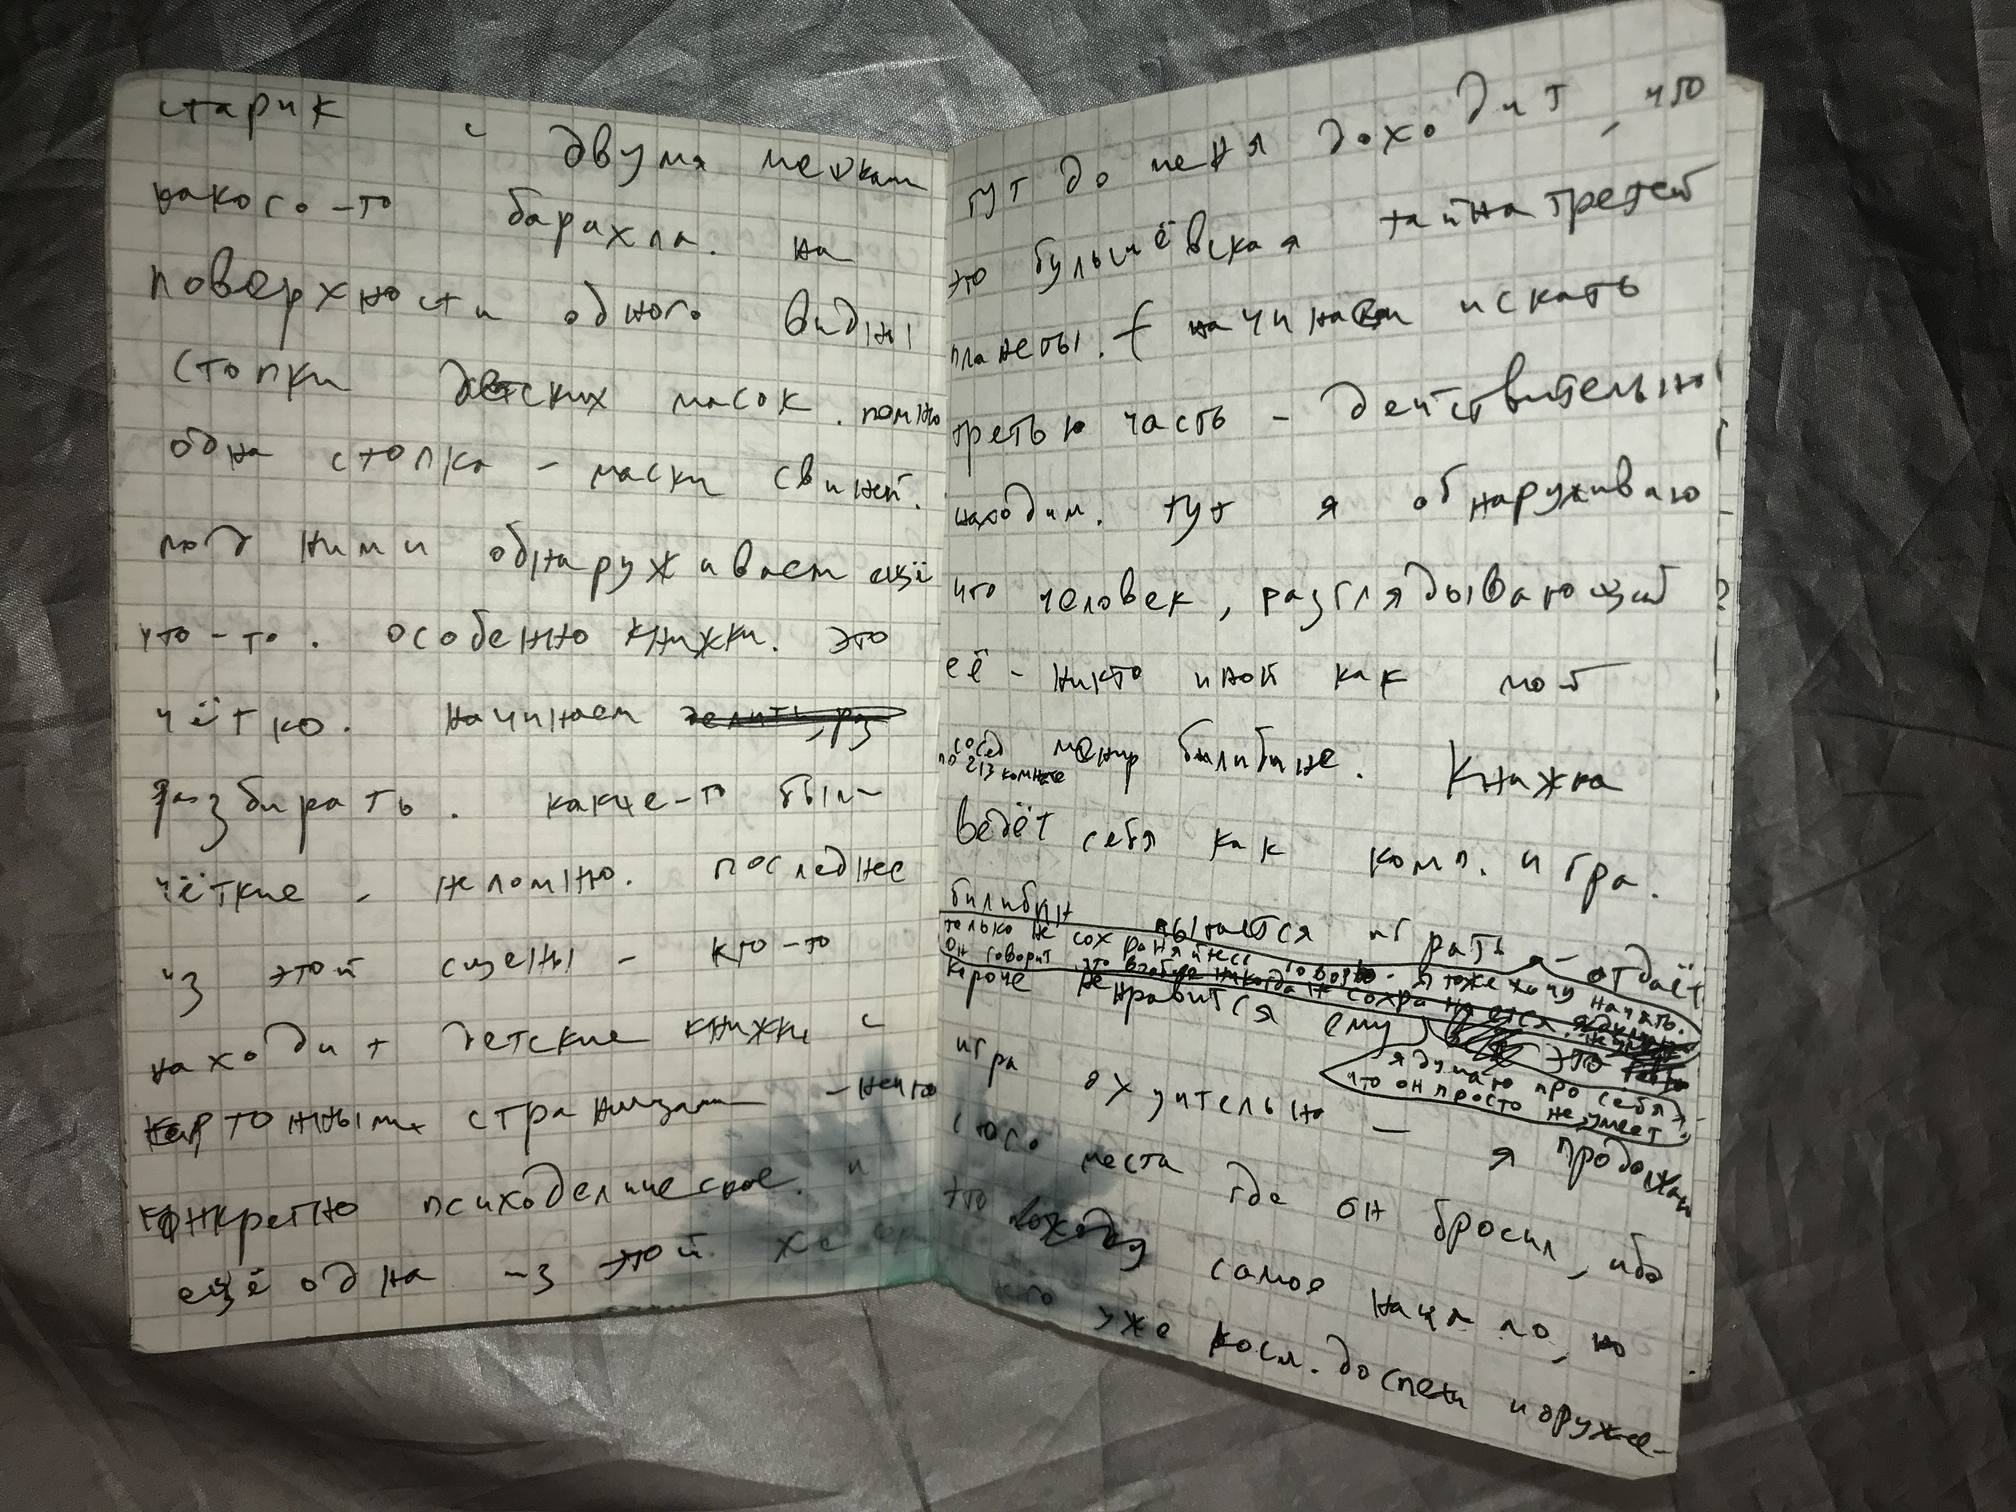 старик с двумя мешками
какого-то барахла. на
поверхности одного видны
стопки детских масок. помню
одна стопка - маски свиней.
под ними обнаруживаем ещё
что-то. особенно книжки. это
чётко. начинаем
разбирать. какие-то были
чёткие, не помню. последнее
из этой сцены - кто-то
находит детские книжки с
картонными страницами - нечто
конкретно психоделическое. и
ещё одна из этой же
тут до меня доходит, что
это булычёвская тайна третей
планеты. начинаем искать
третью часть - действительно
находим. тут я обнаруживаю
что человек, разглядывающий
её - никто иной как мой
сосед по 213 комнате
билибине. Книжка
ведёт себя как комп. игра.
билибин пытается играть - отдаёт
только не сохраняйтесь говорю - я тоже хочу начать.
он говорит это вообще никогда не сохраняется.
короче не нравится ему
я думаю про себя,
что он просто не умеет.
игра охуительна - я продолжаю
с того места где он бросил, ибо
это самое начало, но
уже косм. доспехи и оруже-